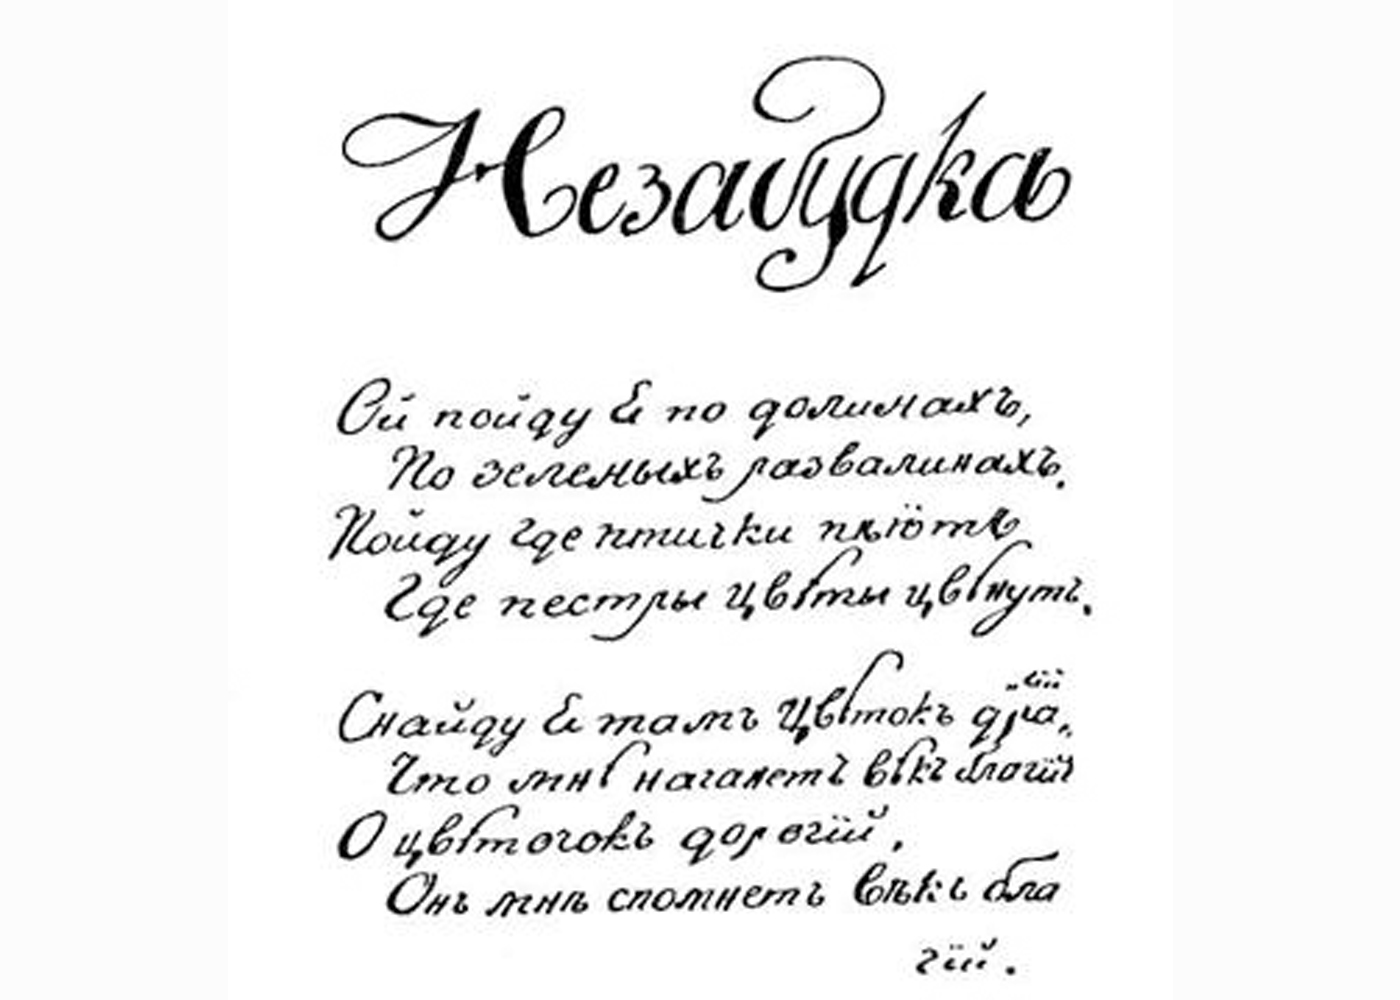 Незабудка
Ой пойду Я по долинахъ,
По зеленыхъ развалинахъ.
Пойду где птички пѣютъ
Где пестры цвѣты цвѣнутъ.
Снайду Я тамъ Цвѣтокъ
Что мнѣ наганетъ вѣкъ благій
О цвѣточокъ дорогій,
Онъ мнѣ спомнетъ вѣкъ бла
гій.